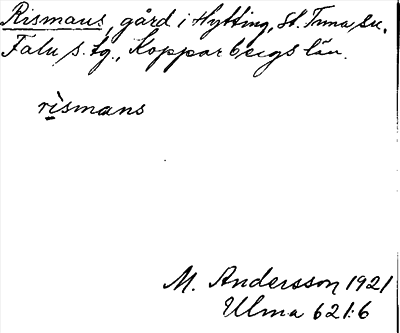 Rismans, gård i Hytting, St. Tuna sn,
Falu s. tg., Kopparbergs län.
rìsmans
M. Andersson 1921
Ulma 621:6